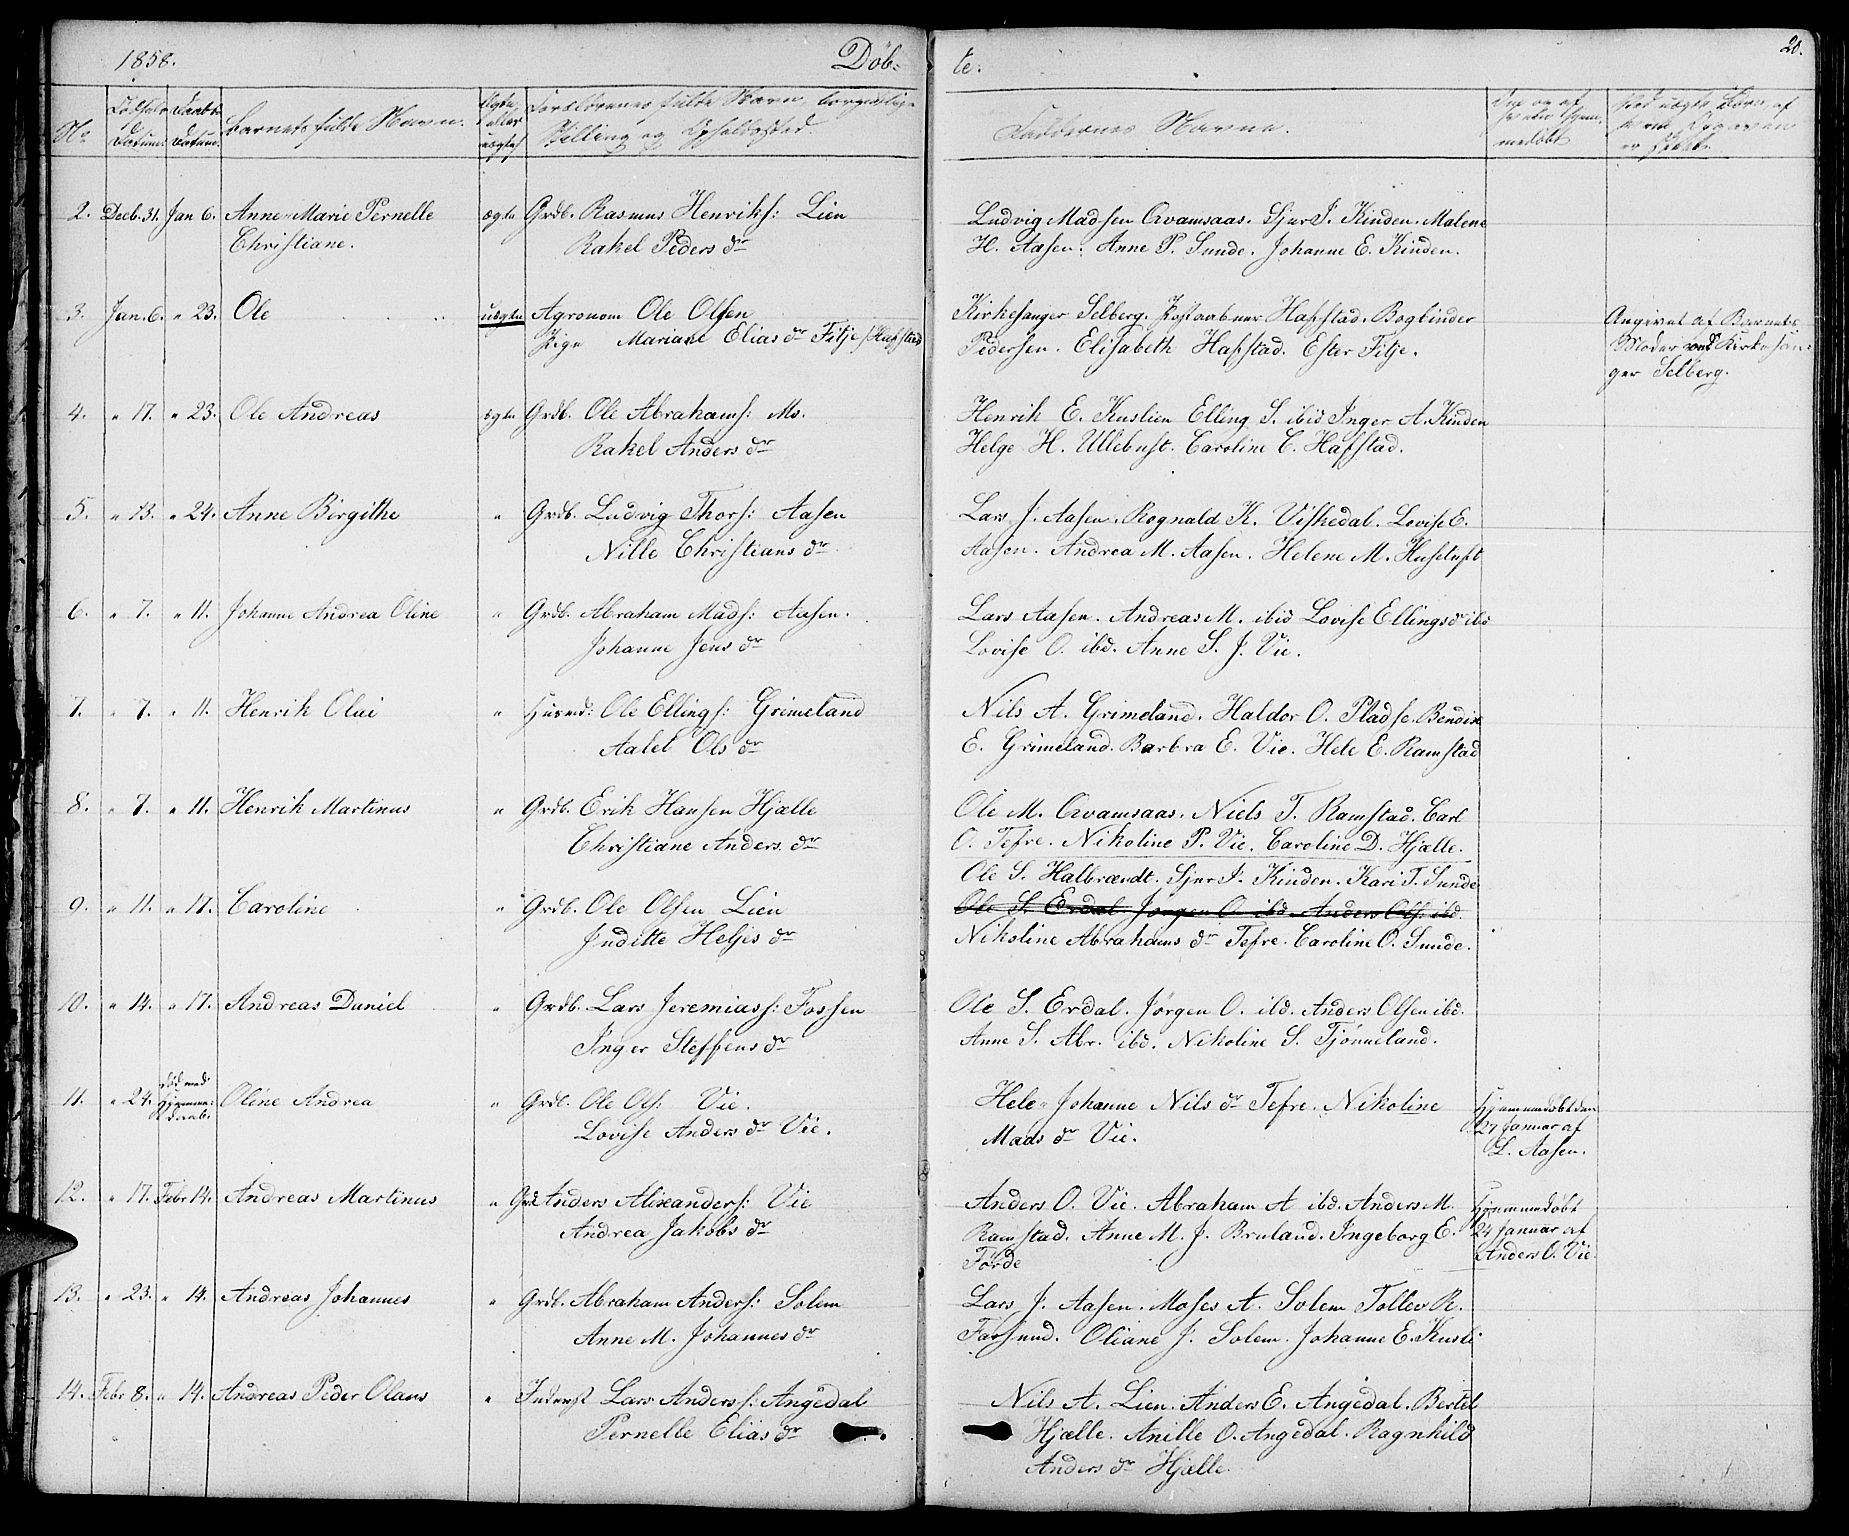 1858. Döb-
te. 20.
No Fødsels Datum Daabs Datum. Barnets fulde Navn. Ægte eller uægte Forældrenes fulde Navn, borgerlige Stilling og Opholdssted.
Faddernes Navne. Om og af hvem hjemmedøbt Ved uægte Børn, af hvem Opgaven er skeet.
2. Decb. 31. Jan 6. Anne Marie Pernelle ægte Grdb. Rasmus Henriks: Lien
Christiane. Rakel Peders dr
Ludvig Madsen Qvamsaas. Sjur J. Kinden. Malene
H. Aasen. Anne P. Sunde. Johanne E. Kinden.
3. Jan. 6. " 23. Ole uægte Agronom Ole Olsen
Pige Mariane Elias dr Fitje / Hafstad
Kirkesanger Selberg. Postaabner Hafstad. Bogbinder
Pedersen. Elisabeth Hafstad. Ester Fitje.
Angivet af Barnets
Moder ved Kirkesan-
ger Selberg.
4. " 17. " 23. Ole Andreas ægte Grdb. Ole Abrahams: Mo.
Rakel Anders dr
Henrik E. Kuslien Elling S. ibid Inger A. Kinden
Helge H. Ullebust. Caroline C. Hafstad.
5. " 13. " 24. Anne Birgithe " Grdb. Ludvig Thors: Aasen
Nille Christians dr
Lars J. Aasen. Rognald K. Viskedal. Lovise E.
Aasen. Andrea M. Aasen. Helene M. Hustuft
6. " 7. " 11. Johanne Andrea Oline " Grdb. Abraham Mads: Aasen.
Johanne Jens dr
Lars Aasen. Andreas M. ibid Lovise Ellings dr ibd
Lovise O. ibd. Anne S. J. Vie.
7. " 7. " 11. Henrik Olai " Husmd: Ole Ellings: Grimeland
Aalet Ols dr
Nils A. Grimeland. Haldor O. Pladse. Bendix
E. Grimeland. Barbra E. Vie. Hele E. Ramstad
8. " 7. " 11. Henrik Martinus " Grdb. Erik Hansen Hjælle
Christiane Anders dr
Ole M. Qvamsaas. Niels T. Ramstad. Carl
O. Tefre. Nikoline P. Vie. Caroline D. Hjælle.
9. " 11. " 17. Caroline " Grdb. Ole Olsen Lien
Juditte Heljes dr
Ole S. Halbrændt. Sjur J. Kinden. Kari T. Sunde
Ole S. Erdal Jørgen O. ibd. Anders Ols: ibd.
Nikoline Abrahams dr Tefre. Caroline O. Sunde.
10. " 14. " 17. Andreas Daniel " Grdb. Lars Jeremiass: Fossen
Inger Steffens dr
Ole S. Erdal. Jørgen O. ibd. Anders Olsen ibd.
Anne S. Abr. ibd. Nikoline S. Tjønneland.
11. " 24. død med Hjemmedaab. Oline Andrea " Grdb. Ole Ols: Vie.
Lovise Anders dr Vie.
Hele Johanne Nils dr Tefre. Nikoline
Mads dr Vie.
Hjemmedøbt den
27 Januar af
L. Aasen.
12. " 17. Febr 14. Andreas Martinus " Grd Anders Alexanders: Vie
Andrea Jakobs dr
Anders O. Vie. Abraham A ibd. Anders M.
Ramstad. Anne M. J. Bruland. Ingeborg E.
Førde
Hjemmedøbt
24 Januar af
Anders O. Vie.
13. " 23. " 14. Andreas Johannes " Grdb. Abraham Anders: Solem
Anne M. Johannes dr
Lars J. Aasen. Moses A. Solem Tollev R.
Farsund. Oliane J. Solem. Johanne E. Kusli
14. Febr 8. " 14. Andreas Peder Olaus " Inderst Lars Anders: Angedal
Pernelle Elias dr
Nils A. Lien. Anders E. Angedal. Bertel
Hjælle. Anille O. Angedal. Ragnhild
Anders dr Hjælle.